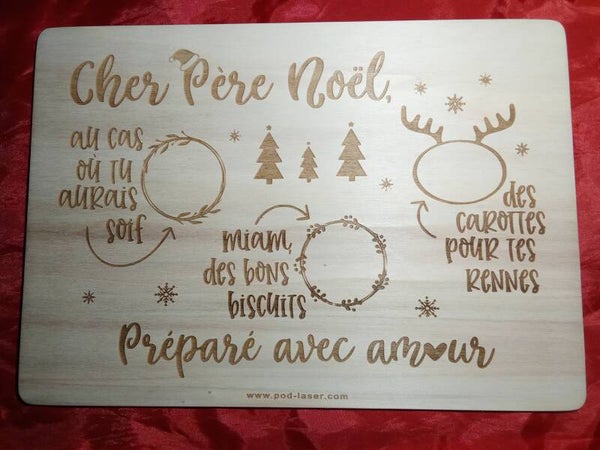 Cher Père Noël,
au cas
où tu
aurais
soif
miam,
des bons
biscuits
des
carottes
pour tes
rennes
Préparé avec amour
www.pod-laser.com